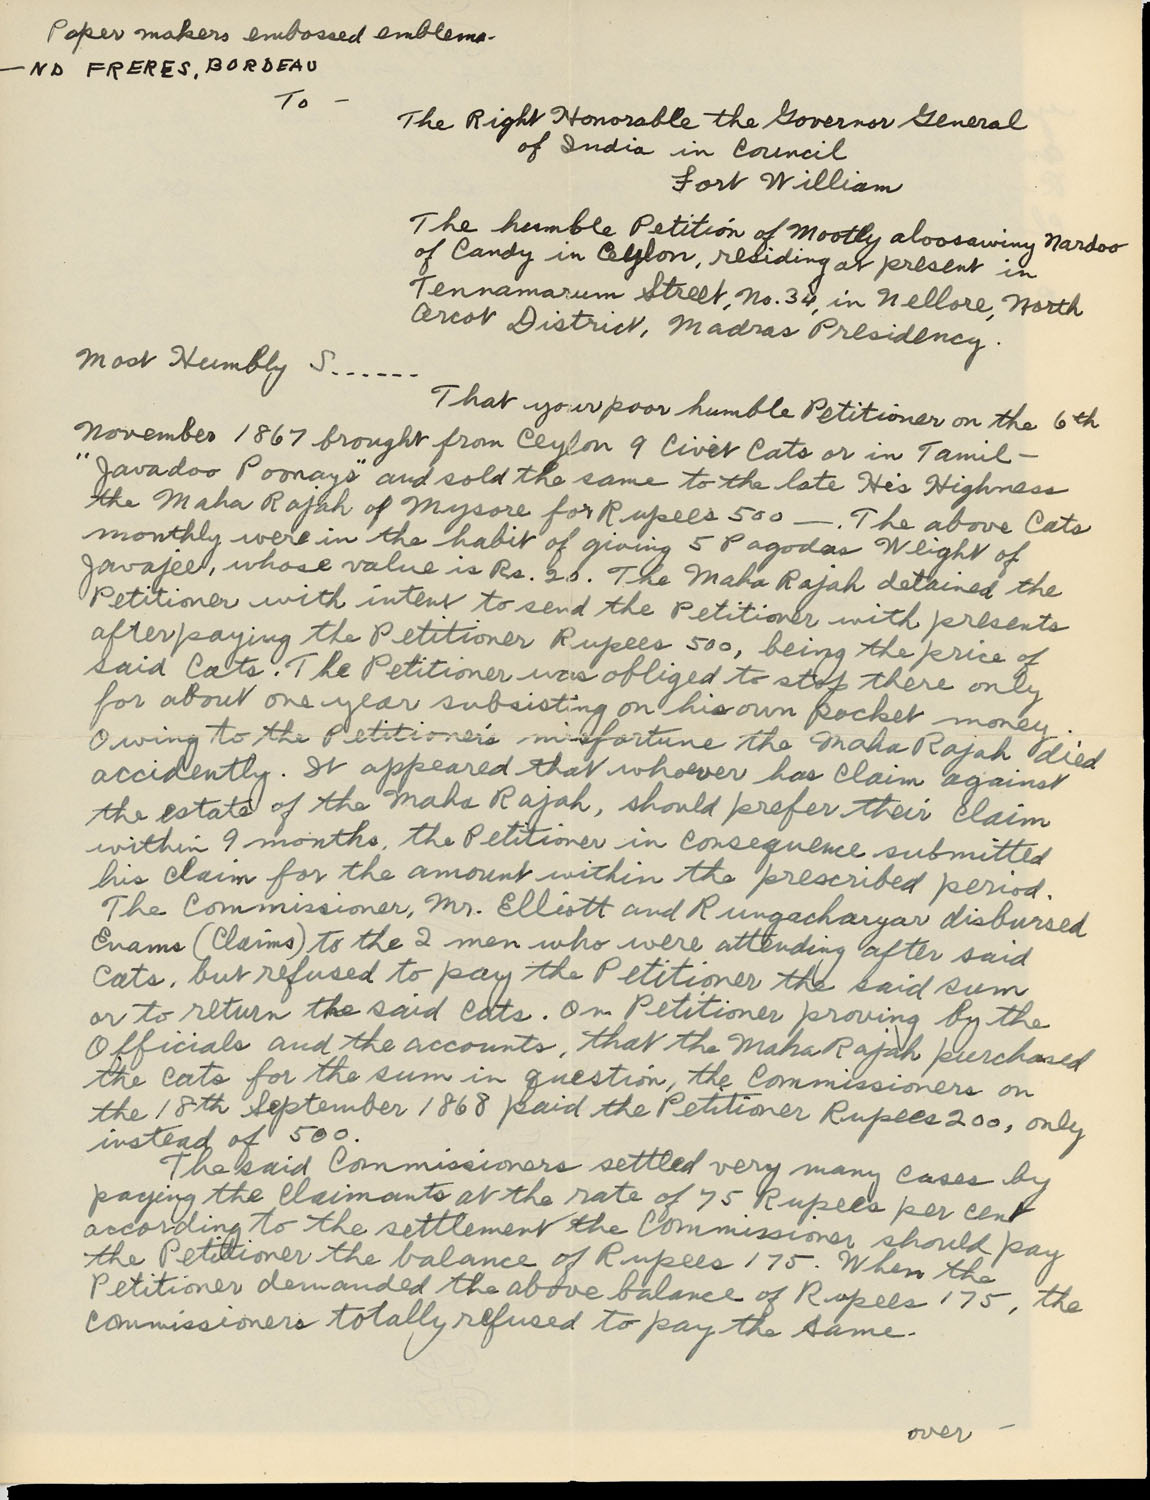 Paper makers embossed emblems-
—ND FRERES, BORDEAU
To -
The Right Honorable the Governor General
of India in Council
Fort William
The humble Petition of Mootly aloosawiny Nardoo
of Candy in Ceylon, residing at present in
Tennamarum Street, No. 34, in Nellore, North
Arcot District, Madras Presidency.
Most Humbly S......
That your poor humble Petitioner on the 6th
November 1867 brought from Ceylon 9 Civet Cats or in Tamil -
"Javadoo Poonays" and sold the same to the late His Highness
the Maha Rajah of Mysore for Rupees 500 —. The above Cats
monthly were in the habit of giving 5 Pagodas Weight of
Javajee, whose value is Rs. 20. The Maha Rajah detained the
Petitioner with intent to send the Petitioner with presents
after paying the Petitioner Rupees 500, being the price of
said Cats. The Petitioner was obliged to stop there only
for about one year subsisting on his own pocket money.
Owing to the Petitioner's misfortune the Maha Rajah died
accidently. It appeared that whoever has claim against
the estate of the Maha Rajah, should prefer their claim
within 9 months, the Petitioner in consequence submitted
his claim for the amount within the prescribed period.
The Commissioner, Mr. Elliott and Rungacharyar disbursed
Enams (Claims) to the 2 men who were attending after said
Cats, but refused to pay the Petitioner the said sum
or to return the said Cats. On Petitioner proving by the
Officials and the accounts, that the Maha Rajah purchased
the Cats for the sum in question, the Commissioners on
the 18th September 1868 paid the Petitioner Rupees 200, only
instead of 500.
The said Commissioners settled very many cases by
paying the Claimants at the rate of 75 Rupees per cent
according to the settlement the Commissioner should pay
the Petitioner the balance of Rupees 175. When the
Petitioner demanded the above balance of Rupees 175, the
Commissioners totally refused to pay the same.
over -